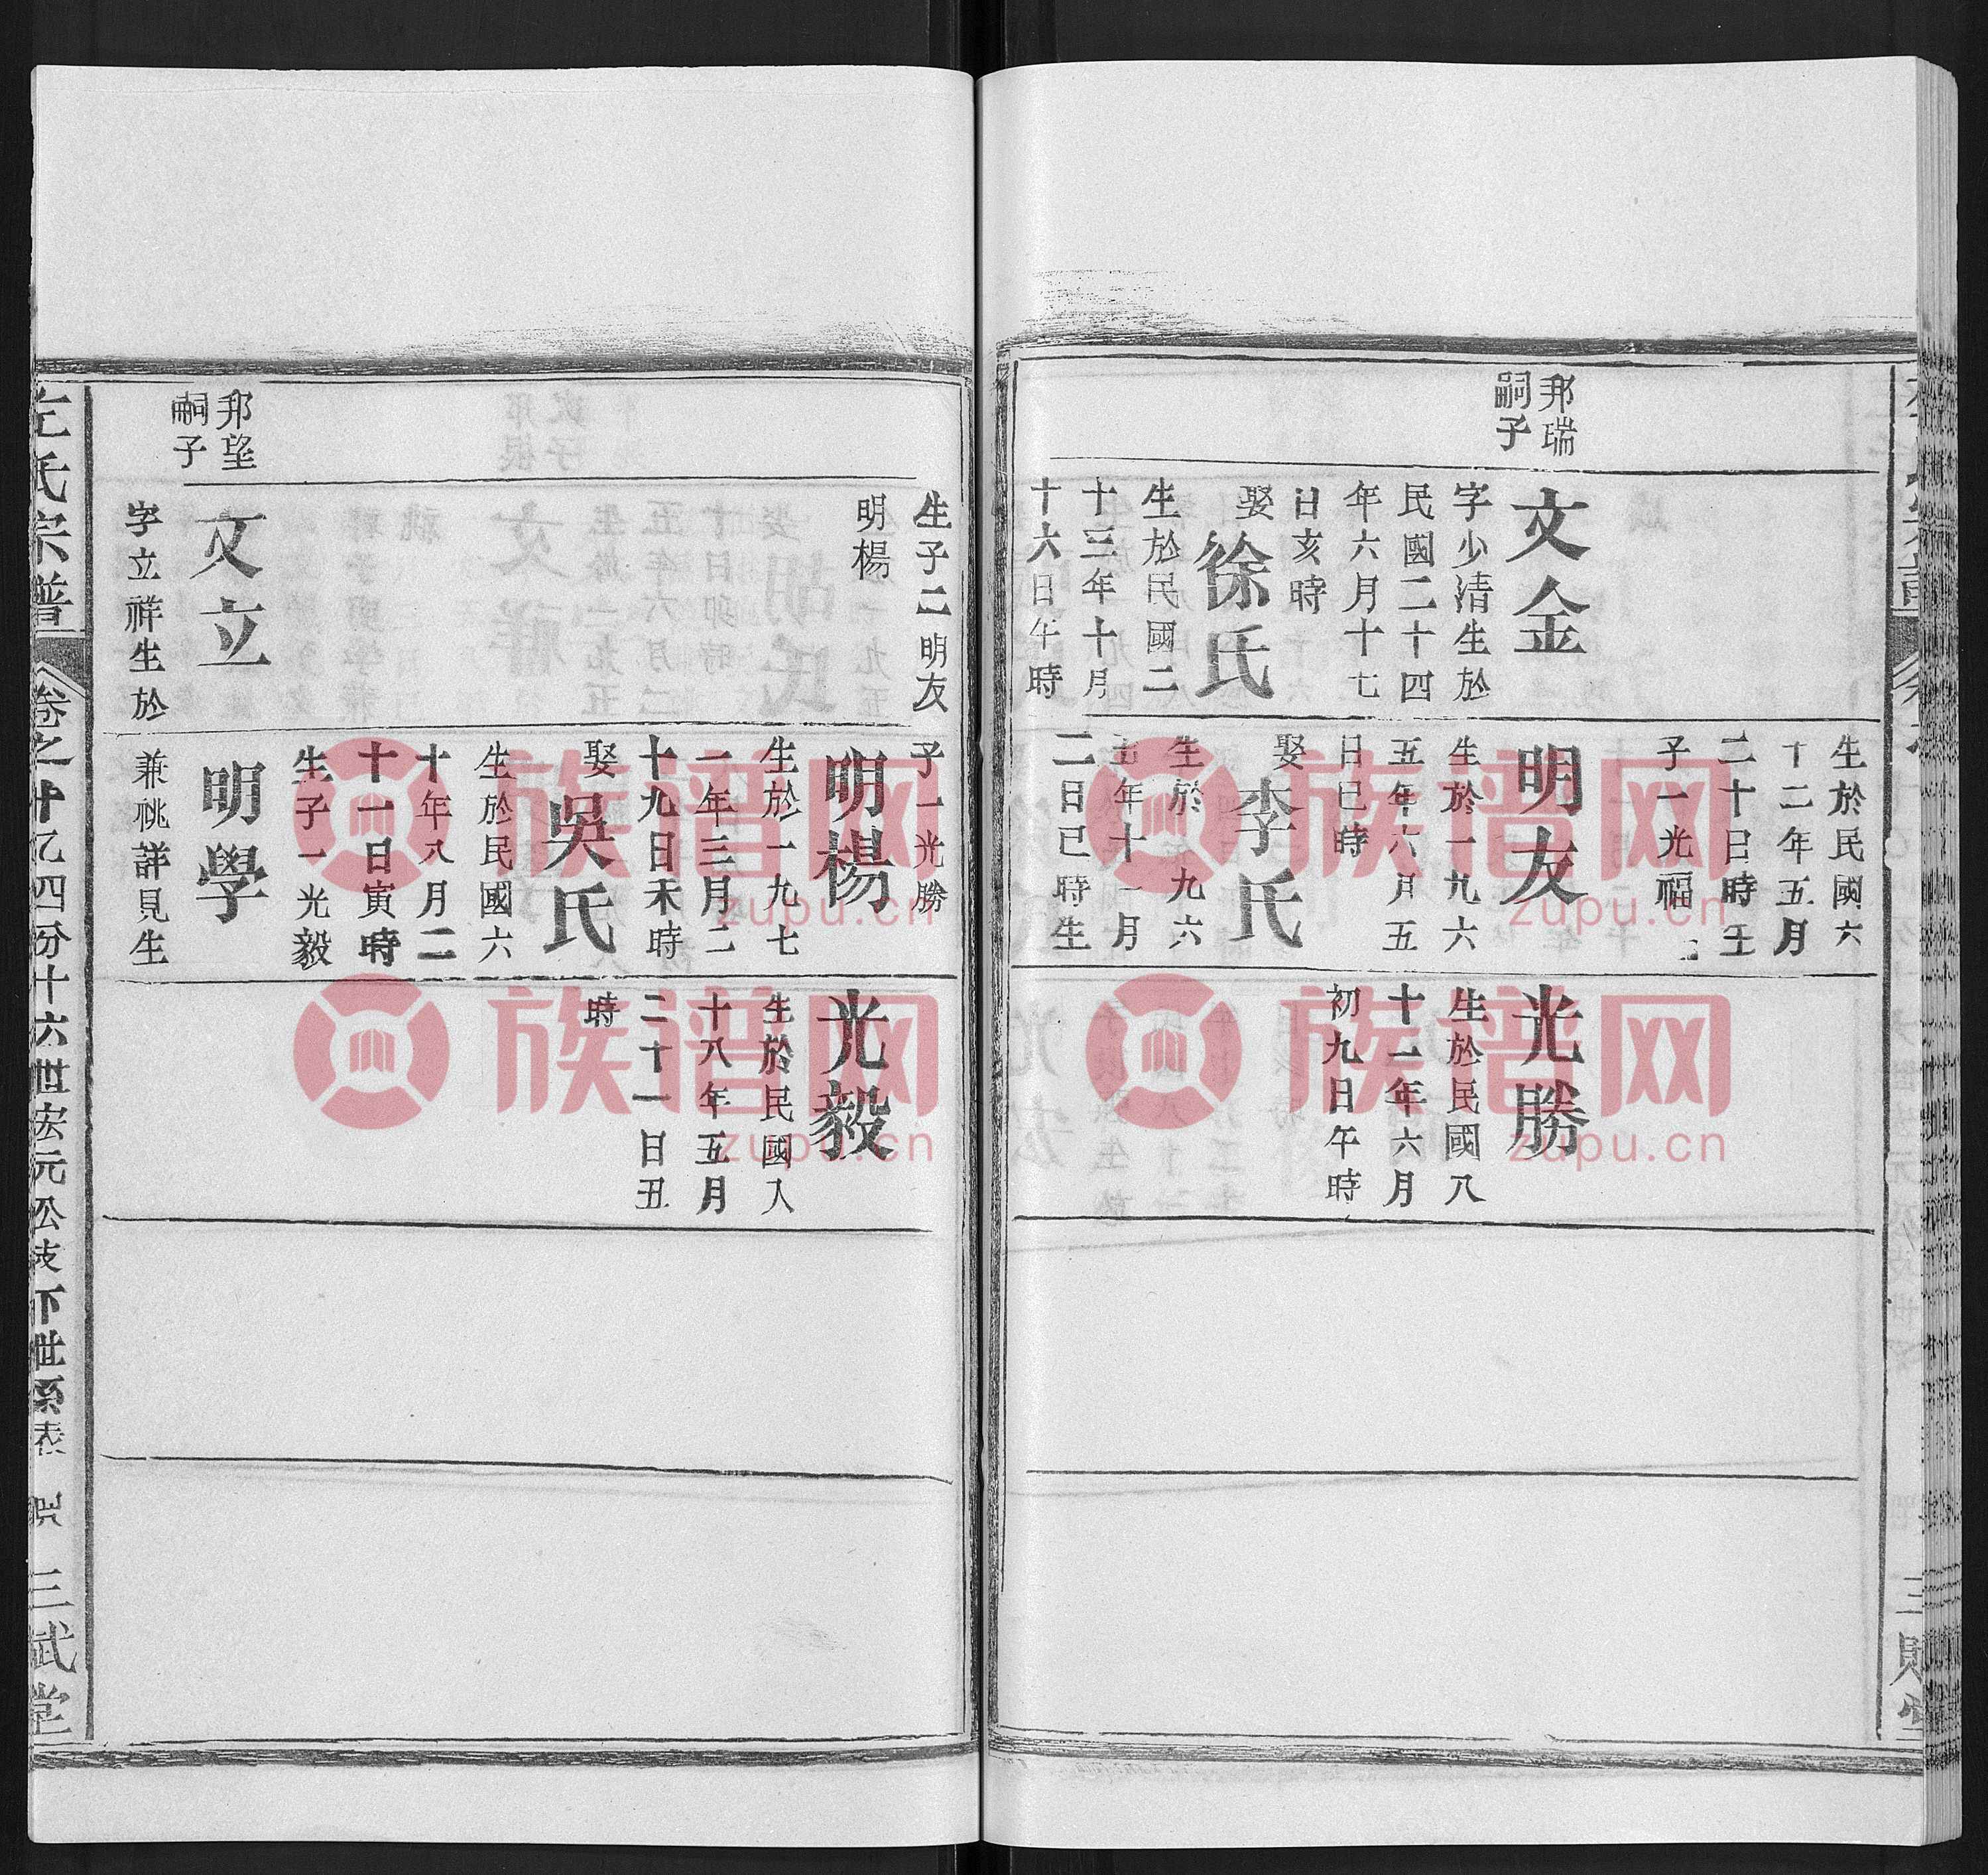 邦瑞
嗣子
文金
字少清生於
民國二十四
年六月十七
日亥時
娶徐氏
生於民國二
十三年十月
十六日午時
生於民國六
十二年五月
二十日時生
子一光福
明友
生於一九六
五年六月五
日巳時
娶李氏
生於一九六
五年十一月
二日巳時生
光勝
生於民國八
十一年六月
初九日午時
三
堂
生子二明友
明楊
邦望
嗣子
文立
字立祥生於
子一光勝
明楊
生於一九七
一年三月二
十九日未時
娶吳氏
生於民國六
十年八月二
十一日寅時
生子一光毅
明學
兼祧詳見生
光毅
生於民國八
十八年五月
二十一日丑
時
左氏宗譜
卷之十乙四分十六世宏元公支下世系表
三賦堂
族谱网
zupu.cn
族谱网
zupu.cn
族谱网
zupu.cn
族谱网
zupu.cn